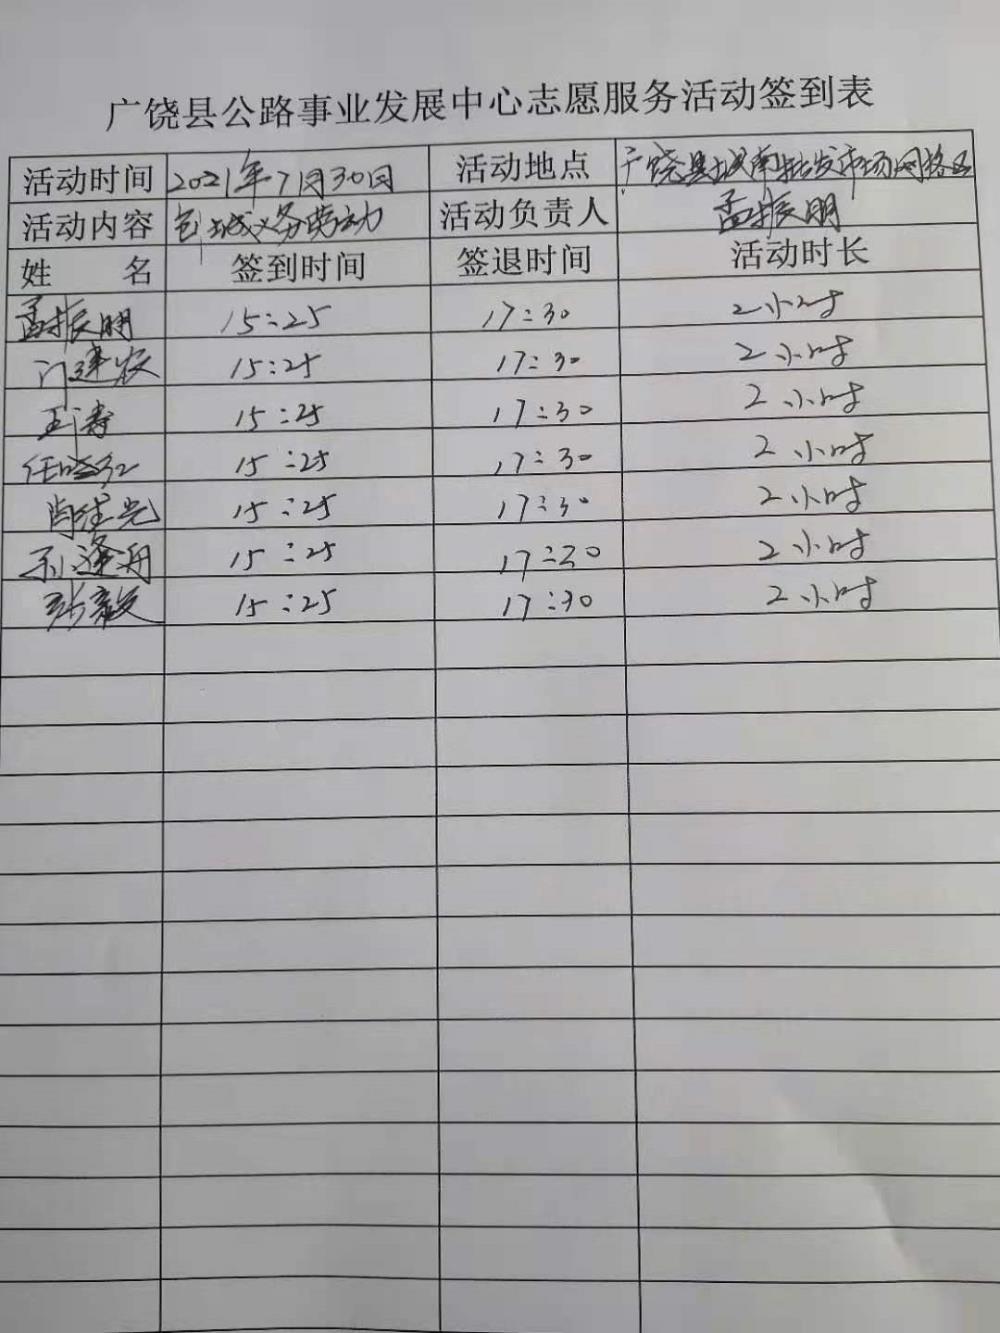 广饶县公路事业发展中心志愿服务活动签到表
活动时间 2021年7月30日 活动地点 广饶县城南批发市场网格区
活动内容 创城义务劳动 活动负责人 孟振明
姓 名 签到时间 签退时间 活动时长
孟振明 15:25 17:30 2小时
门建农 15:25 17:30 2小时
王涛 15:25 17:30 2小时
任 15:25 17:30 2小时
15:25 17:30 2小时
孙逢舟 15:25 17:30 2小时
张毅 15:25 17:30 2小时